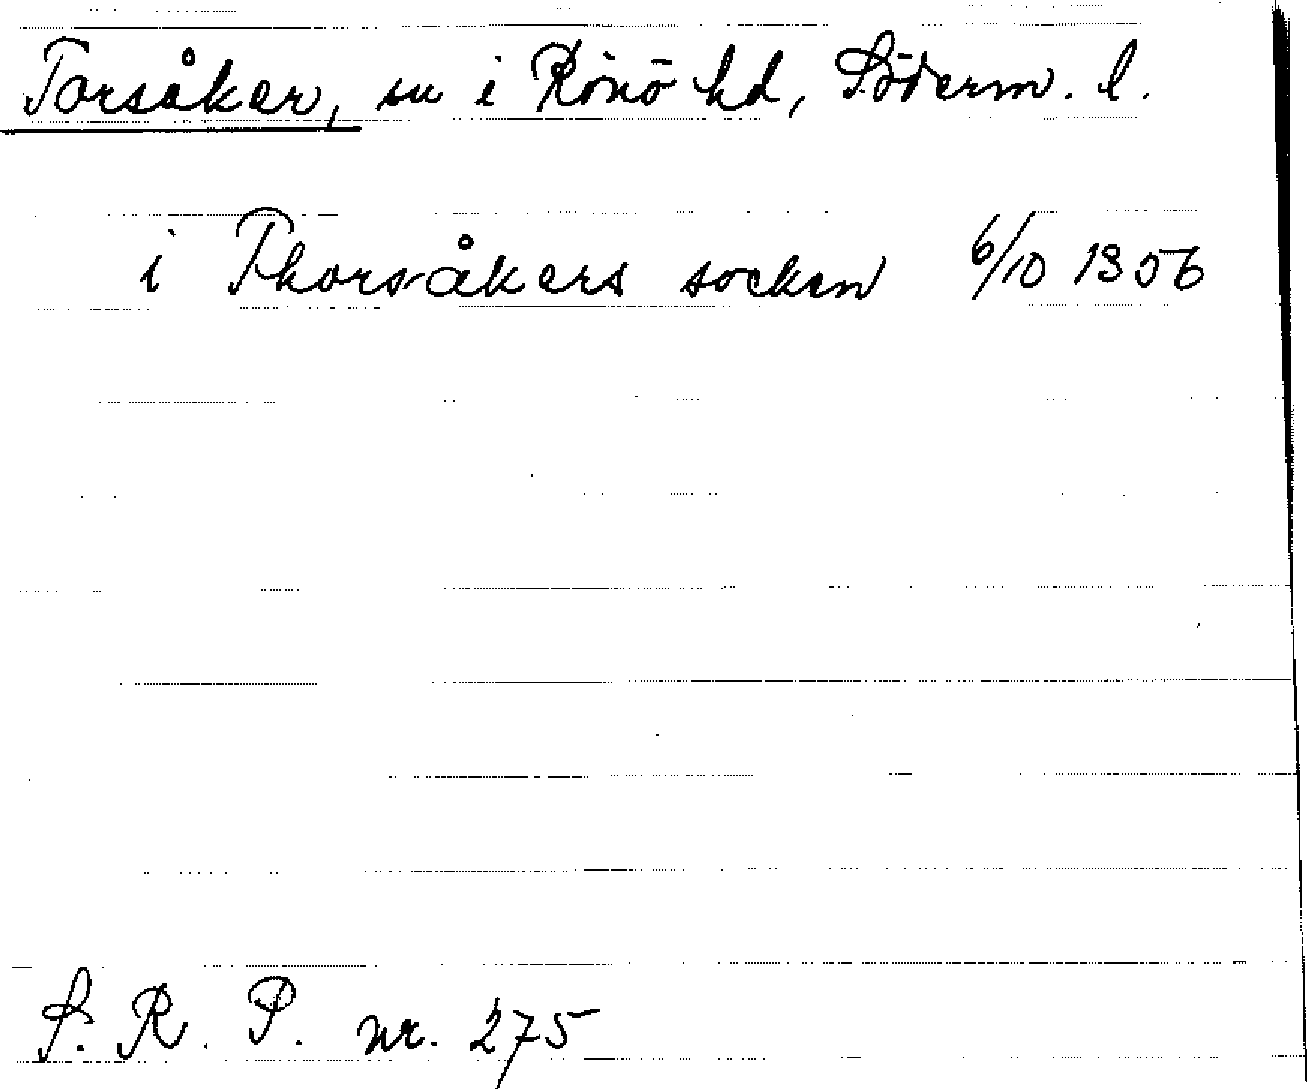 Torsåker, sn i Rönö hd, Söderm. l.
i Thorsåkers socken 6/10 1356
S. R. P. nr. 275